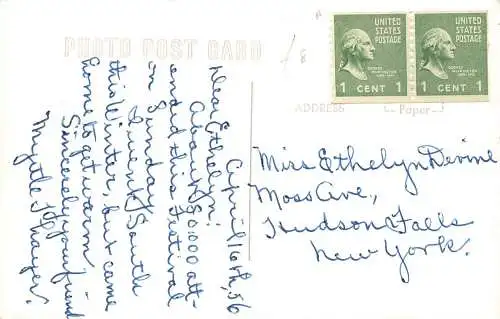 PHOTO POST CARD
UNITED STATES POSTAGE
GEORGE WASHINGTON
1 CENT 1
UNITED STATES POSTAGE
GEORGE WASHINGTON
1 CENT 1
ADDRESS
Paper
April 16th, 56
Dear Ethelyn:
About 80,000 att-
ended this Festival
on Sunday.
I went South
this Winter, but came
home to get warm.
Sincerely your friend
Myrtle Thayer.
Miss Ethelyn Devine
Moss Ave.,
Hudson Falls
New York.